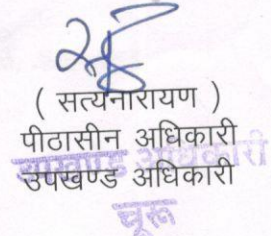 ( सत्यनारायण )
पीठासीन अधिकारी
उपखण्ड अधिकारी
उपखण्ड अधिकारी
चूरू